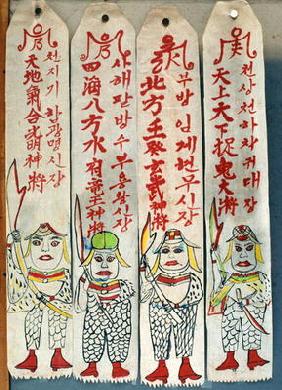 천지기 합광명신장
天地氣合光明神將
사해팔방수부용왕신장
四海八方水府竜王神將
北方壬癸玄武神將
天上天下捉鬼大將
천상천하착귀대장